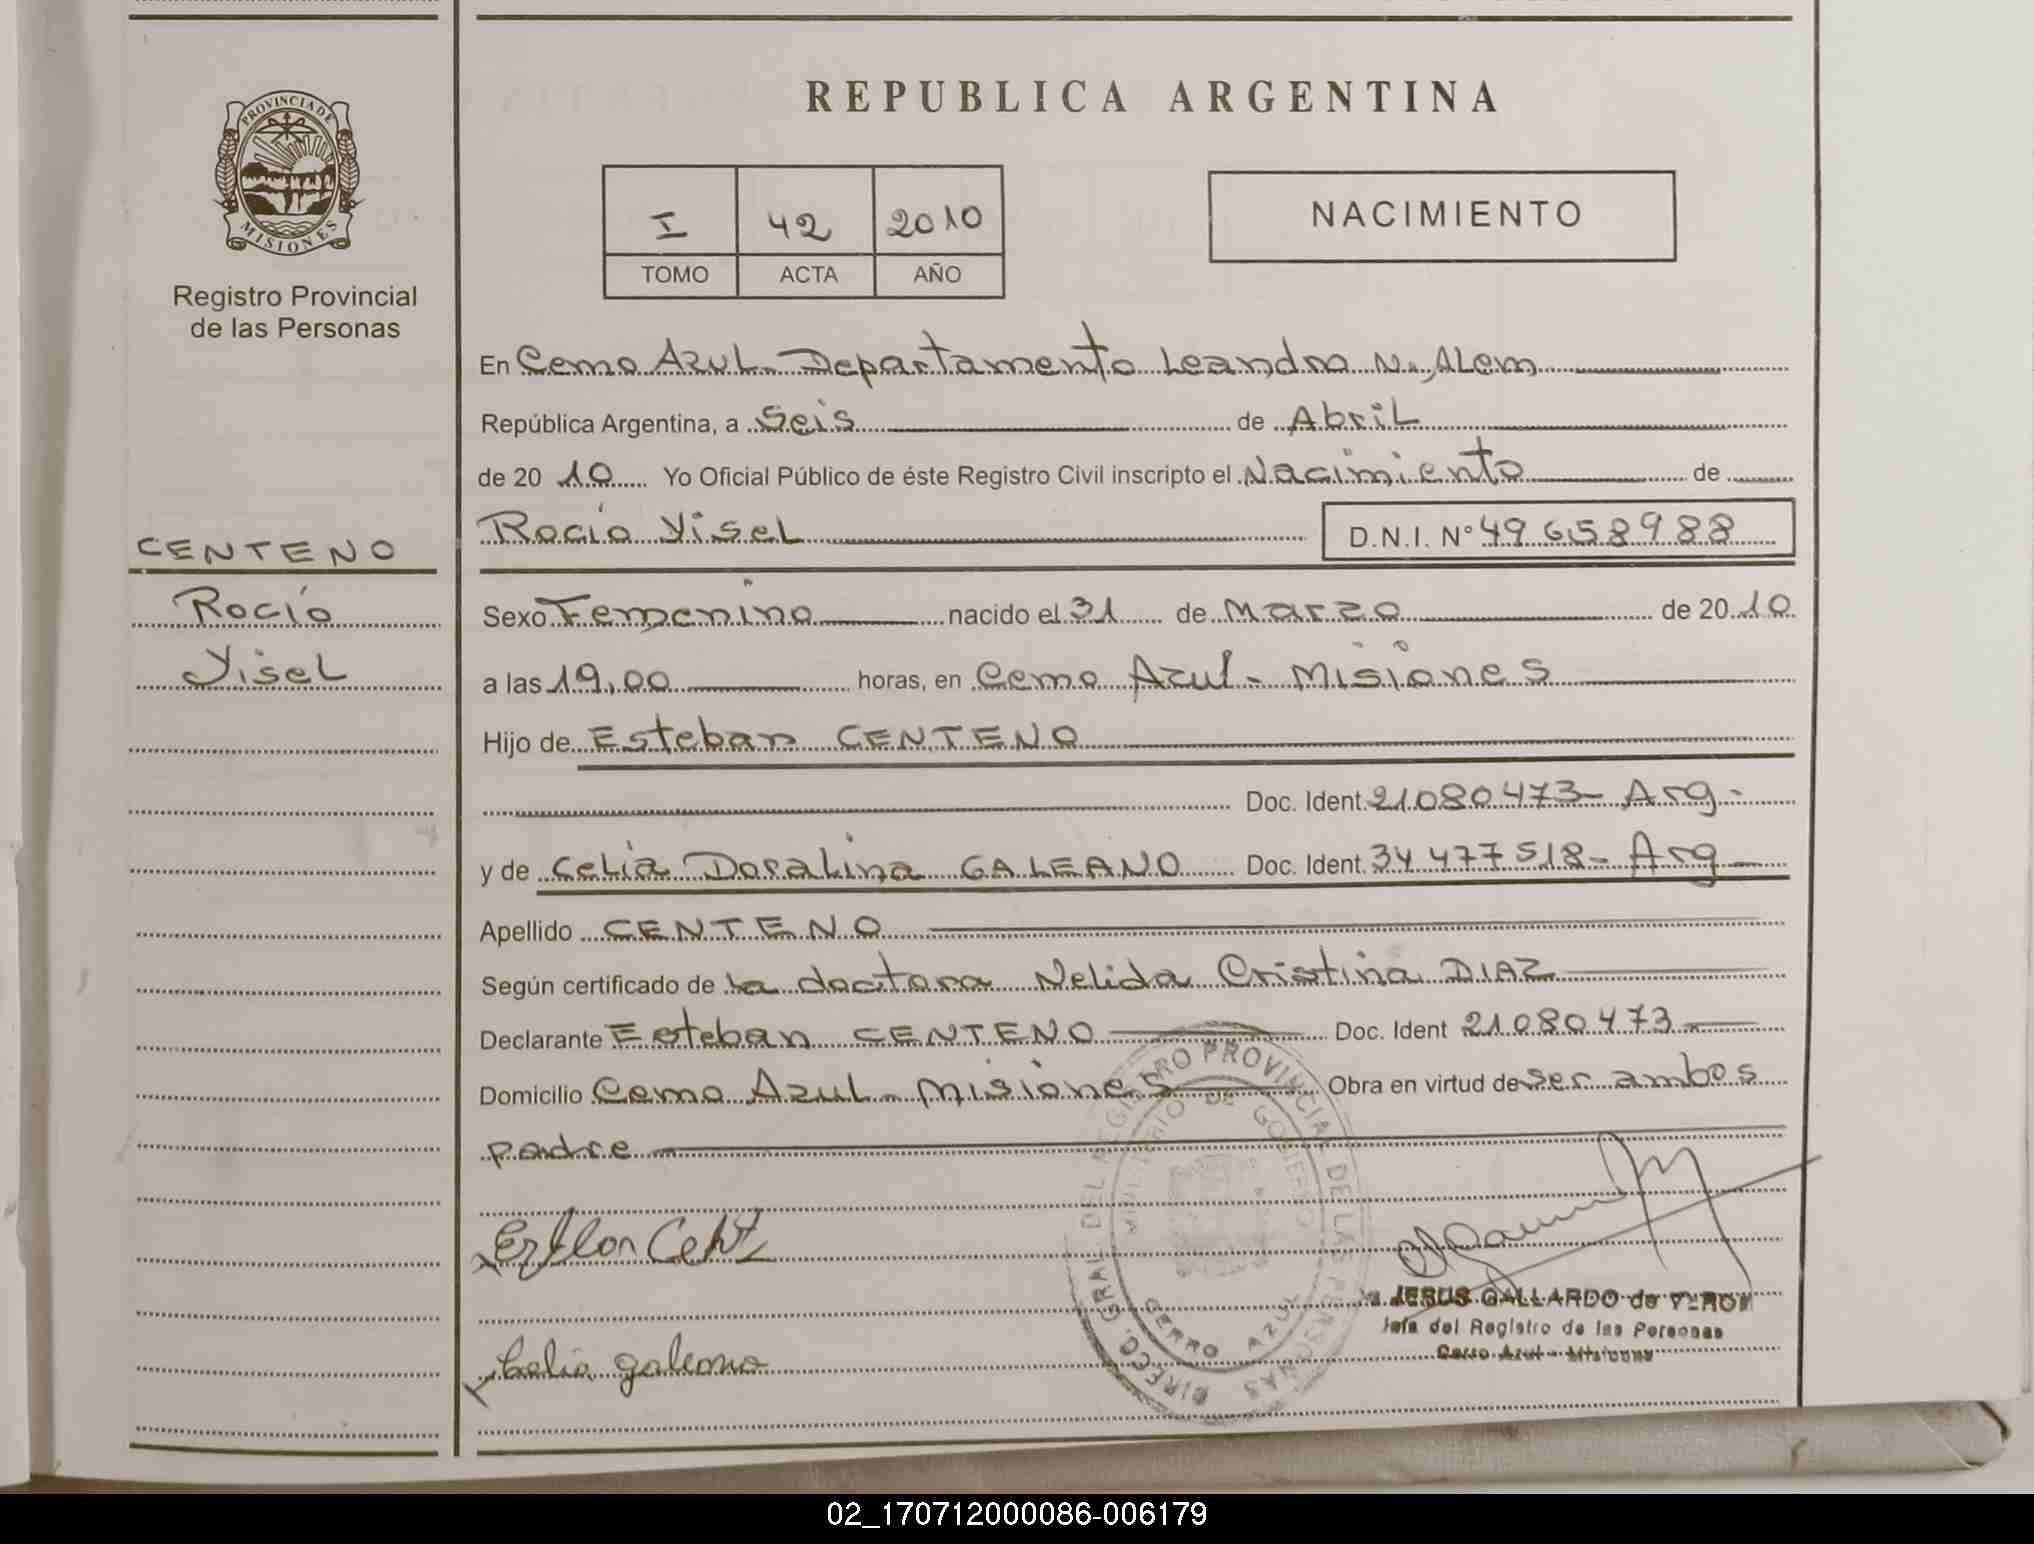 PROVINCIA DE
MISIONES
Registro Provincial
de las Personas
CENTENO
Rocío
Yisel
REPUBLICA ARGENTINA
I 42 2010
TOMO ACTA AÑO
NACIMIENTO
En Cerro Azul - Departamento Leandro N. Alem
República Argentina, a Seis de Abril
de 20 10 Yo Oficial Público de éste Registro Civil inscripto el Nacimiento de
Rocío Yisel D.N.I. N° 49 658988
Sexo Femenino nacido el 31 de Marzo de 20 10
a las 19,00 horas, en Cerro Azul - Misiones
Hijo de Esteban CENTENO
Doc. Ident. 21080473 - Arg -
y de Celia Doralina GALEANO Doc. Ident. 34 477 518 - Arg
Apellido CENTENO
Según certificado de la doctora Nelida Cristina DIAZ
Declarante Esteban CENTENO Doc. Ident 21080473
Domicilio Cerro Azul - Misiones Obra en virtud de ser ambos
padre
DIRECC. GRAL. DEL REGISTRO PROVINCIAL DE LAS PERSONAS
MINISTERIO DE GOBIERNO
CERRO AZUL
Celia galeano
JESUS GALLARDO de
Jefe del Registro de las Personas
Cerro Azul - Misiones
02_170712000086-006179